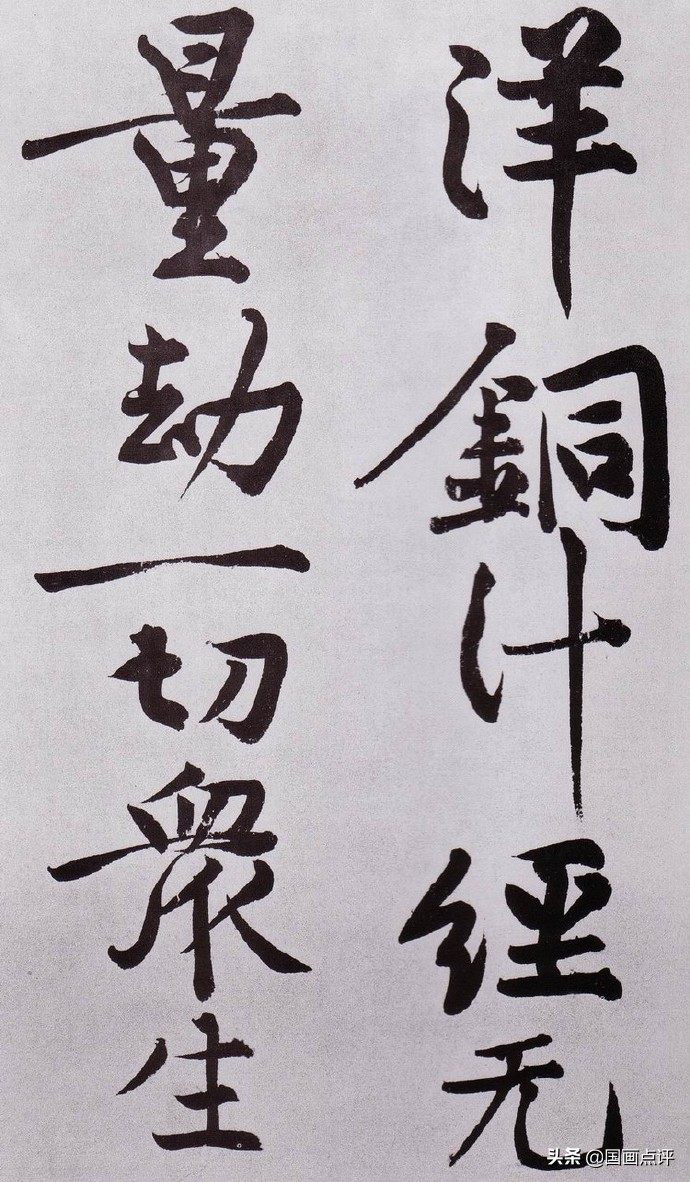 洋銅汁經无
量劫一切衆生
头条 @国画点评